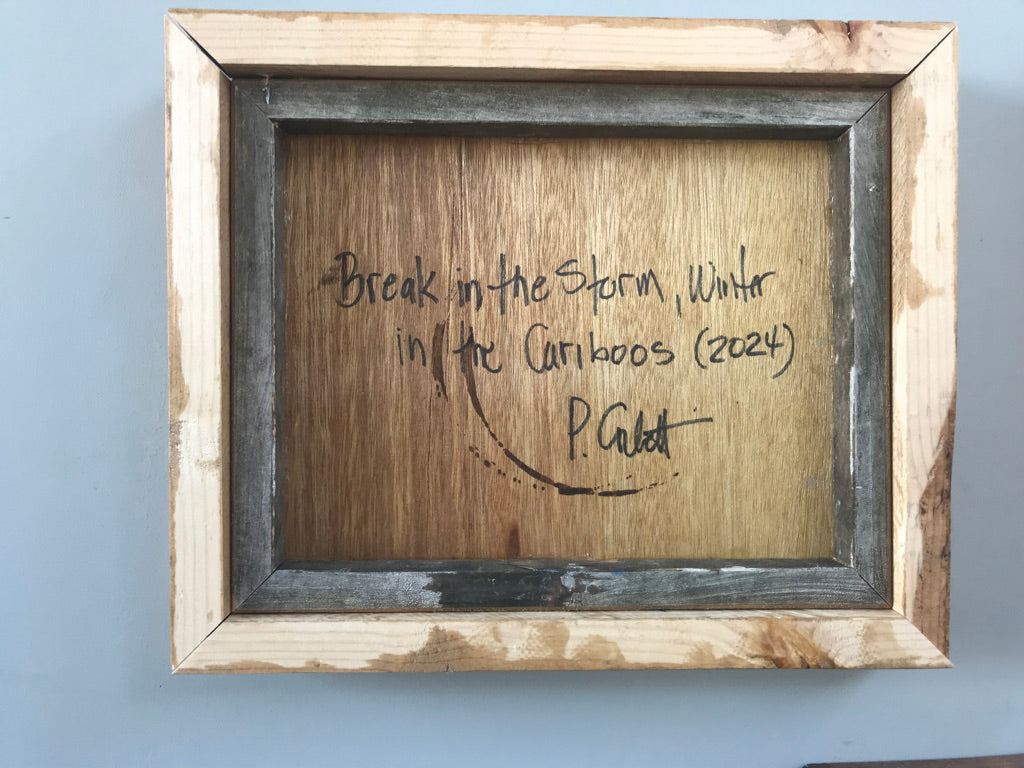 Break in the Storm, Winter
in the Cariboos (2024)
P.